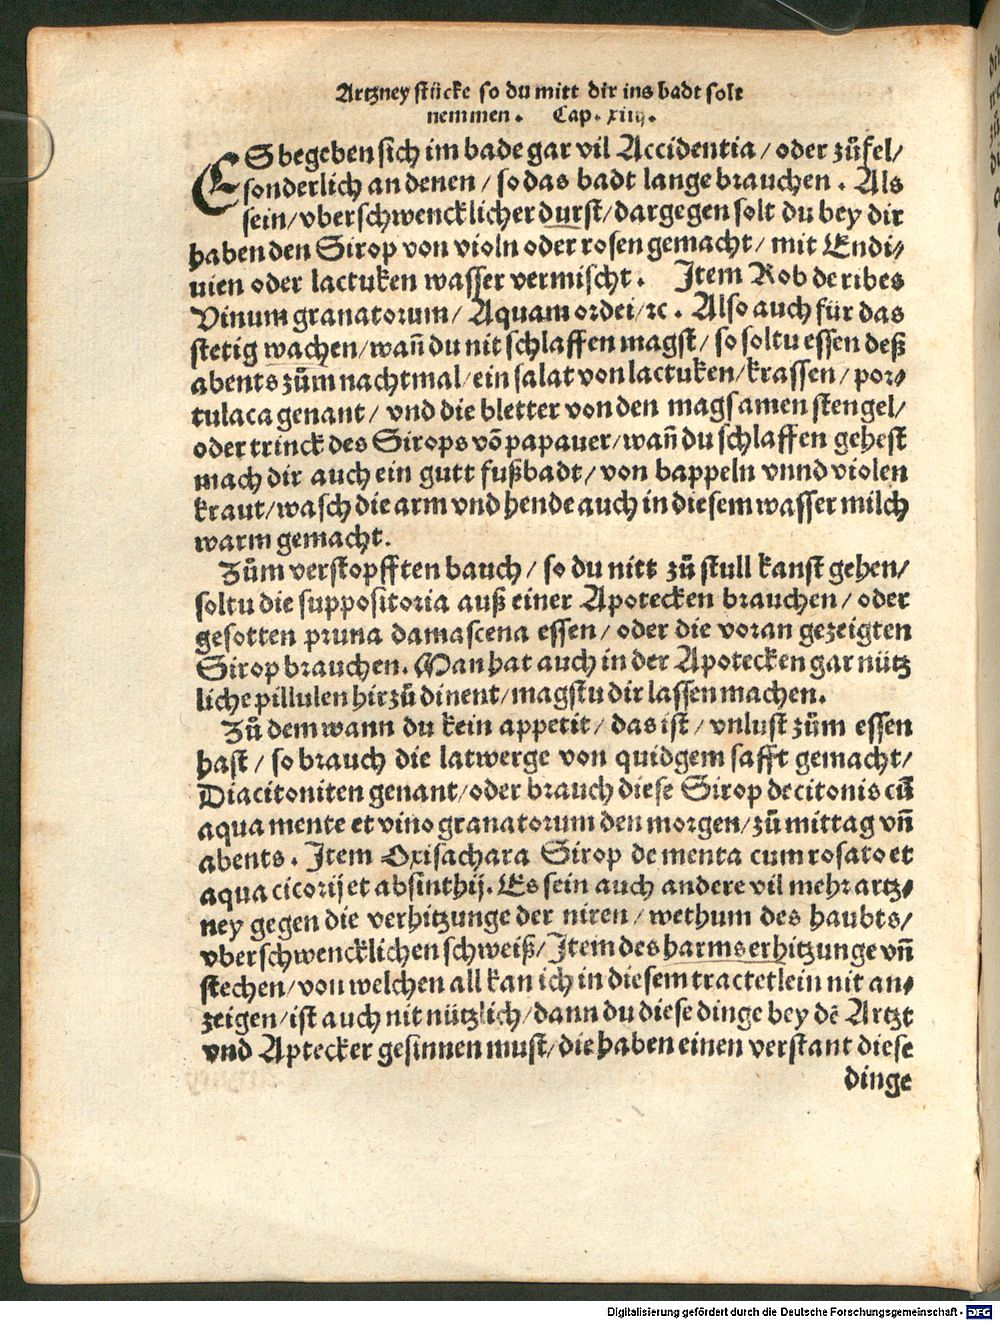 Artzney stücke so du mitt dir ins badt solt
nemmen. Cap. xiiij.
ES begeben sich im bade gar vil Accidentia / oder zůfel/
sonderlich an denen / so das badt lange brauchen. Als
sein/vberschwencklicher durst/dargegen solt du bey dir
haben den Sirop von violn oder rosen gemacht/ mit Endi-
uien oder lactuken wasser vermischt. Item Rob de ribes
Vinum granatorum/ Aquam ordei/ꝛc. Also auch für das
stetig wachen/wañ du nit schlaffen magst/ so soltu essen deß
abents zům nachtmal/ein salat von lactuken/krassen/ por-
tulaca genant/ vnd die bletter von den magsamen stengel/
oder trinck des Sirops võ papauer/wañ du schlaffen gehest
mach dir auch ein gutt fußbadt/von bappeln vnnd violen
kraut/wasch die arm vnd hende auch in diesem wasser milch
warm gemacht.
Zům verstopfften bauch/ so du nitt zů stull kanst gehen/
soltu die suppositoria auß einer Apotecken brauchen/ oder
gesotten pruna damascena essen/ oder die voran gezeigten
Sirop brauchen. Man hat auch in der Apotecken gar nütz
liche pillulen hirzů dinent/magstu dir lassen machen.
Zů dem wann du kein appetit/ das ist/ vnlust zům essen
hast/ so brauch die latwerge von quidgem safft gemacht/
Diacitoniten genant/oder brauch diese Sirop de citonis cũ
aqua mente et vino granatorum den morgen/zů mittag vñ
abents. Item Oxisachara Sirop de menta cum rosato et
aqua cicorij et absinthij. Es sein auch andere vil mehr artz-
ney gegen die verhitzunge der niren/ wethum des haubts/
vberschwencklichen schweiß/Item des harms erhitzunge vñ
stechen/von welchen all kan ich in diesem tractetlein nit an-
zeigen/ist auch nit nützlich/dann du diese dinge bey dẽ Artzt
vnd Aptecker gesinnen must/die haben einen verstant diese
dinge
Digitalisierung gefördert durch die Deutsche Forschungsgemeinschaft - DFG